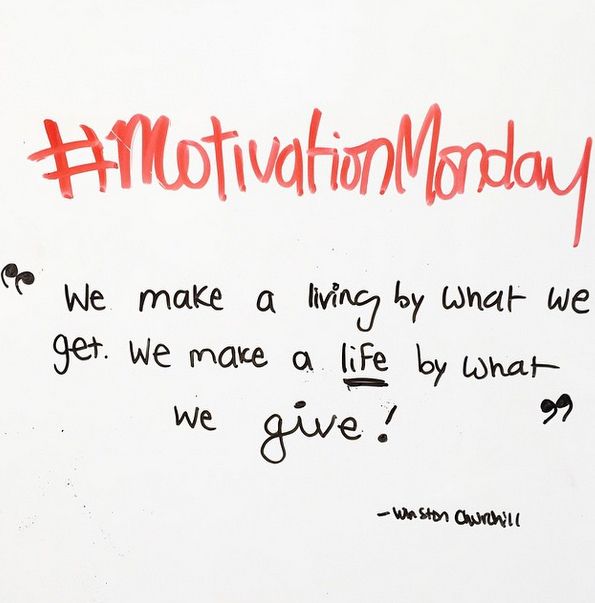 #MotivationMonday
“ We make a living by what we
get. We make a life by what
we give! ”
- Winston Churchill